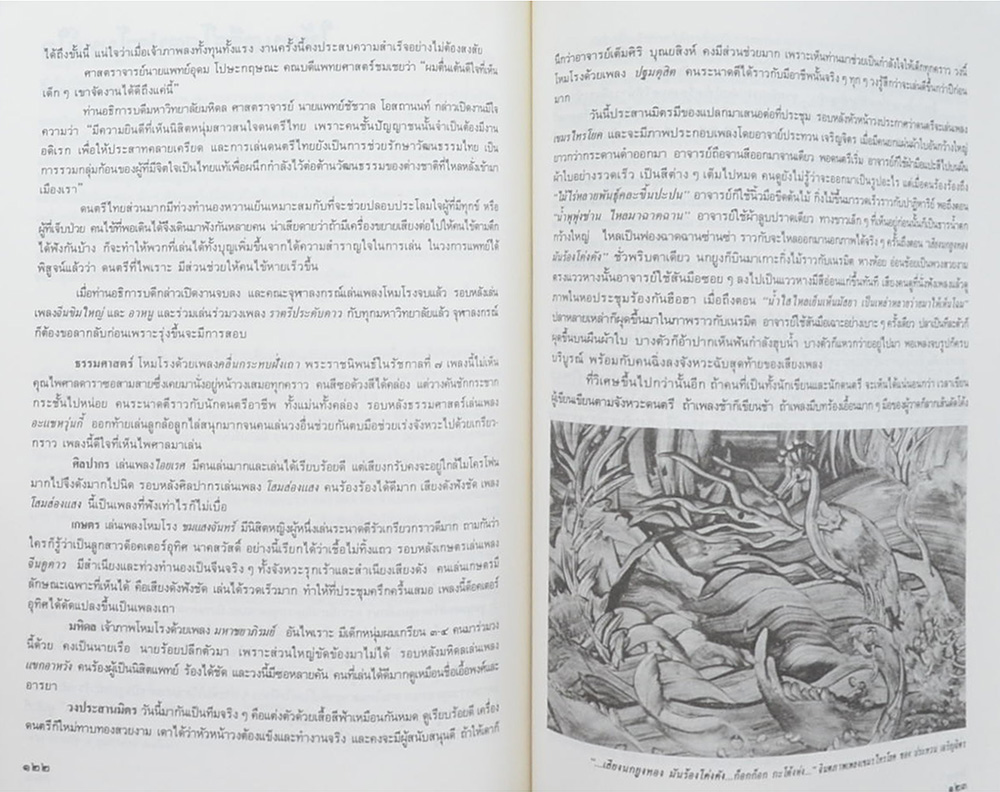 ได้ถึงขั้นนี้ แน่ใจว่าเมื่อเจ้าภาพลงทั้งทุนทั้งแรง งานครั้งนี้คงประสบความสำเร็จอย่างไม่ต้องสงสัย
ศาสตราจารย์นายแพทย์อุดม โปษะกฤษณะ คณบดีแพทยศาสตร์ชมเชยว่า "ผมตื่นเต้นดีใจที่เห็น
เด็ก ๆ เขาจัดงานได้ดีถึงแค่นี้"
ท่านอธิการบดีมหาวิทยาลัยมหิดล ศาสตราจารย์ นายแพทย์ชัชวาล โอสถานนท์ กล่าวเปิดงานมีใจ
ความว่า "มีความยินดีที่เห็นนิสิตหนุ่มสาวสนใจดนตรีไทย เพราะคนชั้นปัญญาชนนั้นจำเป็นต้องมีงาน
อดิเรก เพื่อให้ประสาทคลายเครียด และการเล่นดนตรีไทยยังเป็นการช่วยรักษาวัฒนธรรมไทย เป็น
การรวมกลุ่มก้อนของผู้ที่มีจิตใจเป็นไทยแท้เพื่อผนึกกำลังไว้ต่อต้านวัฒนธรรมของต่างชาติที่ไหลหลั่งเข้ามา
เมืองเรา"
ดนตรีไทยส่วนมากมีท่วงทำนองหวานเย็นเหมาะสมกับที่จะช่วยปลอบประโลมใจผู้ที่มีทุกข์ หรือ
ผู้ที่เจ็บป่วย คนไข้ที่พอเดินได้จึงเดินมาฟังกันหลายคน น่าเสียดายว่าถ้ามีเครื่องขยายเสียงต่อไปให้คนไข้ตามตึก
ได้ฟังกันบ้าง ก็จะทำให้พวกที่เล่นได้ทั้งบุญเพิ่มขึ้นจากได้ความสำราญใจในการเล่น ในวงการแพทย์ได้
พิสูจน์แล้วว่า ดนตรีที่ไพเราะ มีส่วนช่วยให้คนไข้หายเร็วขึ้น
เมื่อท่านอธิการบดีกล่าวเปิดงานจบลง และคณะจุฬาลงกรณ์เล่นเพลงโหมโรงจบแล้ว รอบหลังเล่น
เพลงจีนขิมใหญ่ และ อาหนู และร่วมเล่นร่วมวงเพลง ราตรีประดับดาว กับทุกมหาวิทยาลัยแล้ว จุฬาลงกรณ์
ก็ต้องขอลากลับก่อนเพราะรุ่งขึ้นจะมีการสอบ
ธรรมศาสตร์ โหมโรงด้วยเพลงคลื่นกระทบฝั่งเถา พระราชนิพนธ์ในรัชกาลที่ ๗ เพลงนี้ไม่เห็น
คุณไพศาลดาราซอสามสายซึ่งเคยมานั่งอยู่หน้าวงเสมอทุกคราว คนสีซอด้วงสีได้คล่อง แต่วางคันชักกระชาก
กระชั้นไปหน่อย คนระนาดดีราวกับนักดนตรีอาชีพ ทั้งแม่นทั้งคล่อง รอบหลังธรรมศาสตร์เล่นเพลง
อะแซหวุ่นกี้ ออกท้ายเล่นลูกล้อลูกไล่สนุกมากจนคนเล่นวงอื่นช่วยกันตบมือช่วยเร่งจังหวะไปด้วยเกรียว-
กราว เพลงนี้ดีใจที่เห็นไพศาลมาเล่น
ศิลปากร เล่นเพลงไอยเรศ มีคนเล่นมากและเล่นได้เรียบร้อยดี แต่เสียงกรับคงจะอยู่ใกล้ไมโครโฟน
มากไปจึงดังมากไปนิด รอบหลังศิลปากรเล่นเพลง โสมส่องแสง คนร้องร้องได้ดีมาก เสียงดังฟังชัด เพลง
โสมส่องแสง นี้เป็นเพลงที่ฟังเท่าไรก็ไม่เบื่อ
เกษตร เล่นเพลงโหมโรง ชมแสงจันทร์ มีนิสิตหญิงผู้หนึ่งเล่นระนาดดีรัวเกรียวกราวดีมาก ถามกันว่า
ใครก็รู้ว่าเป็นลูกสาวด็อคเตอร์อุทิศ นาคสวัสดิ์ อย่างนี้เรียกได้ว่าเชื้อไม่ทิ้งแถว รอบหลังเกษตรเล่นเพลง
จีนดูดาว มีสำเนียงและท่วงทำนองเป็นจีนจริง ๆ ทั้งจังหวะรุกเร้าและสำเนียงเสียงดัง คนเล่นเกษตรมี
ลักษณะเฉพาะที่เห็นได้ คือเสียงดังฟังชัด เล่นได้รวดเร็วมาก ทำให้ที่ประชุมครึกครื้นเสมอ เพลงนี้ด็อคเตอร์
อุทิศได้ดัดแปลงขึ้นเป็นเพลงเถา
มหิดล เจ้าภาพโหมโรงด้วยเพลง มหาชยาภิรมย์ อันไพเราะ มีเด็กหนุ่มผมเกรียน ๓-๔ คนมาร่วมวง
นี้ด้วย คงเป็นนายเรือ นายร้อยปลีกตัวมา เพราะส่วนใหญ่ขัดข้องมาไม่ได้ รอบหลังมหิดลเล่นเพลง
แขกอาหวัง คนร้องผู้เป็นนิสิตแพทย์ ร้องได้ชัด และวงนี้มีซอหลายคัน คนที่เล่นได้ดีมากดูเหมือนชื่อเอื้อพงศ์และ
อารยา
วงประสานมิตร วันนี้มากันเป็นทีมจริง ๆ คือแต่งตัวด้วยเสื้อสีฟ้าเหมือนกันหมด ดูเรียบร้อยดี เครื่อง
ดนตรีก็ใหม่ทาบทองสวยงาม เดาได้ว่าหัวหน้าวงต้องแข็งและทำงานจริง และคงจะมีผู้สนับสนุนดี ถ้าให้เดาก็
๑๒๒
นึกว่าอาจารย์เต็มศิริ บุณยสิงห์ คงมีส่วนช่วยมาก เพราะเห็นท่านมาช่วยเป็นกำลังใจให้เด็กทุกคราว วงนี้
โหมโรงด้วยเพลง ปฐมดุสิต คนระนาดดีได้ราวกับมืออาชีพนั้นจริง ๆ ทุก ๆ วงรู้สึกว่าจะเล่นดีขึ้นกว่าปีก่อน
มาก
วันนี้ประสานมิตรมีของแปลกมาเสนอต่อที่ประชุม รอบหลังหัวหน้าวงประกาศว่าดนตรีจะเล่นเพลง
เขมรไทรโยค และจะมีภาพประกอบเพลงโดยอาจารย์ประทวน เจริญจิตร เมื่อมีคนยกแผ่นผ้าใบอันกว้างใหญ่
ยาวกว่ากระดานดำออกมา อาจารย์ถือจานสีออกมาจานเดียว พอดนตรีเริ่ม อาจารย์ก็ใช้ฝ่ามือแปะสีไปบนผืน
ผ้าใบอย่างรวดเร็ว เป็นสีต่าง ๆ เต็มไปหมด คนดูยังไม่รู้ว่าจะออกมาเป็นรูปอะไร แต่เมื่อคนร้องร้องถึง
"ไม้ไร่หลายพันธุ์คละขึ้นปะปน" อาจารย์ก็ใช้นิ้วมือขีดต้นไม้ กิ่งไม้ขึ้นมารวดเร็วราวกับปาฏิหาริย์ พอถึงตอน
"น้ำพุพุ่งซ่าน ไหลมาฉาดฉาน" อาจารย์ใช้ผ้าลูบปราดเดียว ทางขาวเล็ก ๆ ที่เห็นอยู่ก่อนนั้นก็เป็นธารน้ำตก
กว้างใหญ่ ไหลเป็นฟองฉาดฉานซ่านซ่า ราวกับจะไหลออกมานอกภาพได้จริง ๆ ครั้นถึงตอน "เสียงนกยูงทอง
มันร้องโด่งดัง" ชั่วพริบตาเดียว นกยูงก็บินมาเกาะกิ่งไม้ราวกับเนรมิต หางห้อย อ่อนช้อยเป็นพวงสวยงาม
ตรงแววหางนั้นอาจารย์ใช้สันมือซอย ๆ ลงไปเป็นแววหางมีสีอ่อนแก่ขึ้นทันที เสียงคนดูที่นั่งฟังเพลงแล้วดู
ภาพในหอประชุมร้องกันฮือฮา เมื่อถึงตอน "น้ำใสไหลเย็นเห็นมัสยา
ปลาหลายเหล่าก็ผุดขึ้นมาในภาพราวกับเนรมิต อาจารย์ใช้สันมือเฉาะอย่างเบาะ ๆ ครั้งเดียว ปลาเป็นทีละตัวก็
ผุดขึ้นบนผืนผ้าใบ บางตัวก็อ้าปากเห็นฟันกำลังฮุบน้ำ บางตัวก็แหวกว่ายอยู่ไปมา พอเพลงจบรูปก็ครบ
บริบูรณ์ พร้อมกับคนฉิ่งลงจังหวะฉับสุดท้ายของเสียงเพลง
ที่วิเศษขึ้นไปกว่านั้นอีก ถ้าคนที่เป็นทั้งนักเขียนและนักดนตรี จะเห็นได้แน่นอนว่า เวลาเขียน
ผู้เขียนเขียนตามจังหวะดนตรี ถ้าเพลงช้าก็เขียนช้า ถ้าเพลงมีบทร้องเอื้อนมาก ๆ มือของผู้วาดก็ลากเส้นคดโค้ง
"...เสียงนกยูงทอง มันร้องโด่งดัง...ก๊อกก๊อก กะโต้งฮ่ง..." จินตภาพเพลงเขมรไทรโยค ของ ประทวน เจริญจิตร
๑๒๓